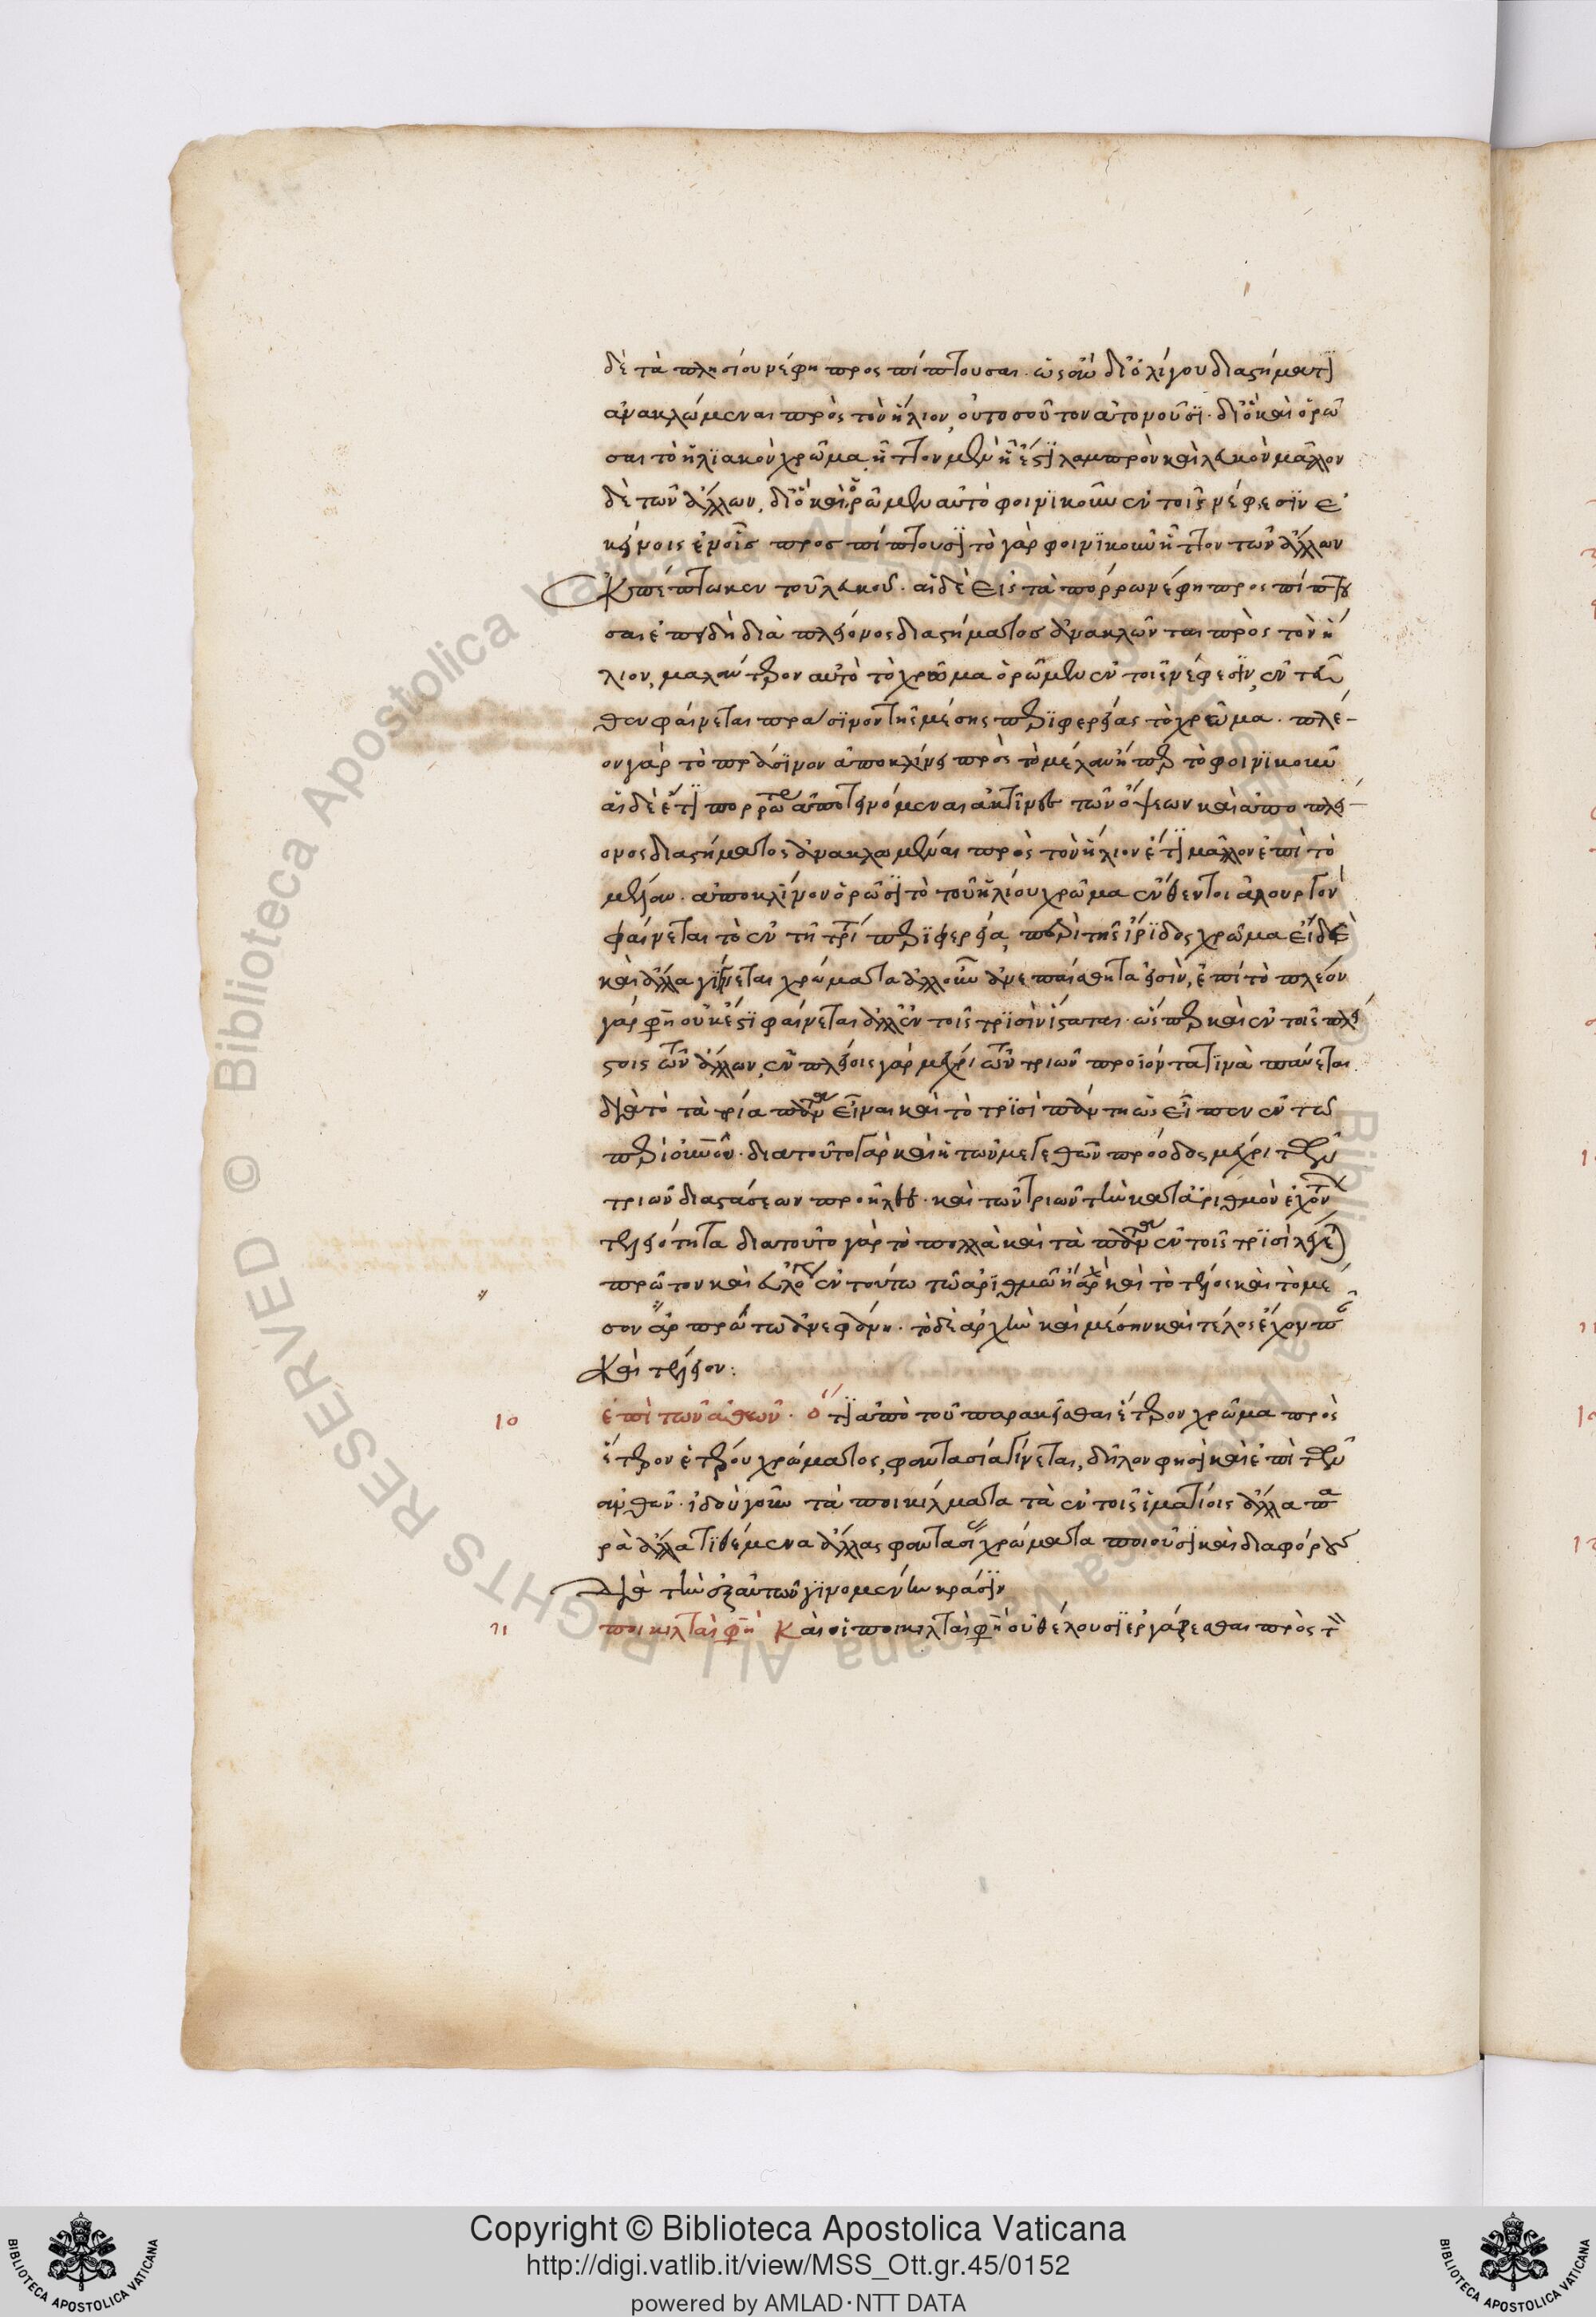 δὲ τὰ πλησίον νέφη προσπίπτουσαι. ὡς οὖν δι ὀλίγου διαστήματι
ἀνακλώμεναι πρὸς τὸν ἥλιον, οὐ τοσοῦτον ἀτονοῦσι. διὸ καὶ ὁρῶ
σαι τὸ ἡλιακὸν χρῶμα, ἧττον μὲν ἢ ἔστι λαμπρὸν καὶ λευκὸν μᾶλλον
δὲ τῶν ἄλλων, διὸ καὶ ὁρῶμεν αὐτὸ φοινικοῦν ἐν τοῖς νέφεσιν ἐ
κείνοις προσπίπτουσι τὸ γὰρ φοινικοῦν ἧττον τῶν ἄλλων
ἐκπέπτωκεν τοῦ λευκοῦ. αἱ δὲ εἰς τὰ πόρρω νέφη προσπίπτου
σαι ἐπειδὴ διὰ πλείονος διαστήματος ἀνακλῶνται πρὸς τὸν ἥ
λιον, μελάντερον αὐτὸ τὸ χρῶμα ὁρῶμεν ἐν τοῖς νέφεσιν, ἐνταῦ
θεν φαίνεται πράσινον τῆς μέσης περιφερείας τὸ χρῶμα. πλέ-
ον γὰρ τὸ πράσινον ἀποκλίνει πρὸς τὸ μέλαν ἤπερ τὸ φοινικοῦν
αἱ δὲ ἔτι πορρωτέρω ἀποτεινόμεναι ἀκτῖνες τῶν ὄψεων καὶ ἀπὸ πλεί-
ονος διαστήματος ἀνακλαμέναι πρὸς τὸν ἥλιον ἔτι μᾶλλον ἐπὶ τὸ
μέλαν. ἀποκλῖνον ὁρῶσι τὸ τοῦ ἡλίου χρῶμα ἔνθεν τοι ἁλουργὸν
φαίνεται τὸ ἐν τῇ τρίτῃ περιφερείᾳ, περὶ τῆς ἴριδος χρῶμα εἰ δὲ
καὶ ἄλλα γίνεται χρώματα ἀλλ οὖν ἀνεπαίσθητα εἰσὶν, ἐπὶ τὸ πλέον
γάρ φησιν οὐκέτι φαίνεται ἀλλ ἐν τοῖς τρισὶν ἵσταται. ὥσπερ καὶ ἐν τοῖς πλεί
στοις τῶν ἄλλων, ἐν πλείοσι γὰρ μέχρι τῶν τριῶν προϊόντα τινὰ παύεται
διὰ τὸ τὰ τρία πάντα εἶναι καὶ τὸ τρισὶ πάντη ὡς εἶπεν ἐν τῷ
περὶ οὐρανοῦ. διὰ τοῦτο γὰρ καὶ ἡ τῶν μεγεθῶν πρόοδος μέχρι τῶν
τριῶν διαστάσεων προῆλθε. καὶ τῶν τριῶν τὴν κατ ἀριθμὸν ἔχον
τελειότητα διὰ τοῦτο γὰρ τὸ πολλὰ καὶ τὰ πάντα ἐν τοῖς τρισὶ λέγεται
πρῶτον καὶ εὐλόγως ἐν τούτῳ τῷ ἀριθμῷ ἡ ἀρχὴ καὶ τὸ τέλος καὶ τὸ μέ
σον ἄρα πρώτω ἀνεφάνη. τὸ δὲ ἀρχὴν καὶ μέσην καὶ τέλος ἔχον
καὶ τέλειον:
10 ἐπὶ τῶν ἀνθεων. ὅτι ἀπὸ τοῦ παρακεῖσθαι ἕτερον χρῶμα πρὸς
ἕτερον ἑτέρου χρώματος, φαντασία γίνεται, δῆλον φησὶ καὶ ἐπὶ τῶν
ἀνθῶν. ἰδοὺ γοῦν τὰ ποικίλματα τὰ ἐν τοῖς ἱματίοις ἄλλα πα
ρὰ ἄλλα τιθέμενα ἄλλας φαντασίας χρώματα ποιοῦσι καὶ διαφόρους
διὰ τὴν ἐξ αὐτῶν γινομένην κρᾶσιν
11 ποικιλταὶ φησὶ Καὶ οἱ ποικιλταὶ φησὶ οὐ θέλουσι ἐργάζεσθαι πρὸς
Copyright © Biblioteca Apostolica Vaticana
http://digi.vatlib.it/view/MSS_Ott.gr.45/0152
powered by AMLAD·NTT DATA
BIBLIOTECA APOSTOLICA VATICANA
BIBLIOTECA APOSTOLICA VATICANA
© Biblioteca Apostolica Vaticana ALL RIGHTS RESERVED